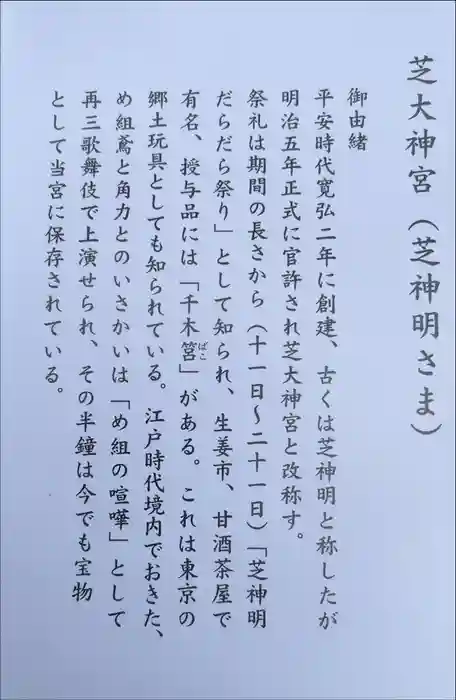 芝大神宮(芝神明さま)
御由緒
平安時代寛弘二年に創建、古くは芝神明と称したが
明治五年正式に官許され芝大神宮と改称す。
祭礼は期間の長さから(十一日～二十一日)「芝神明
だらだら祭り」として知られ、生姜市、甘酒茶屋で
有名、授与品には「千木筥ばこ」がある。これは東京の
郷土玩具としても知られている。江戸時代境内でおきた、
め組鳶と角力とのいさかいは「め組の喧嘩」として
再三歌舞伎で上演せられ、その半鐘は今でも宝物
として当宮に保存されている。